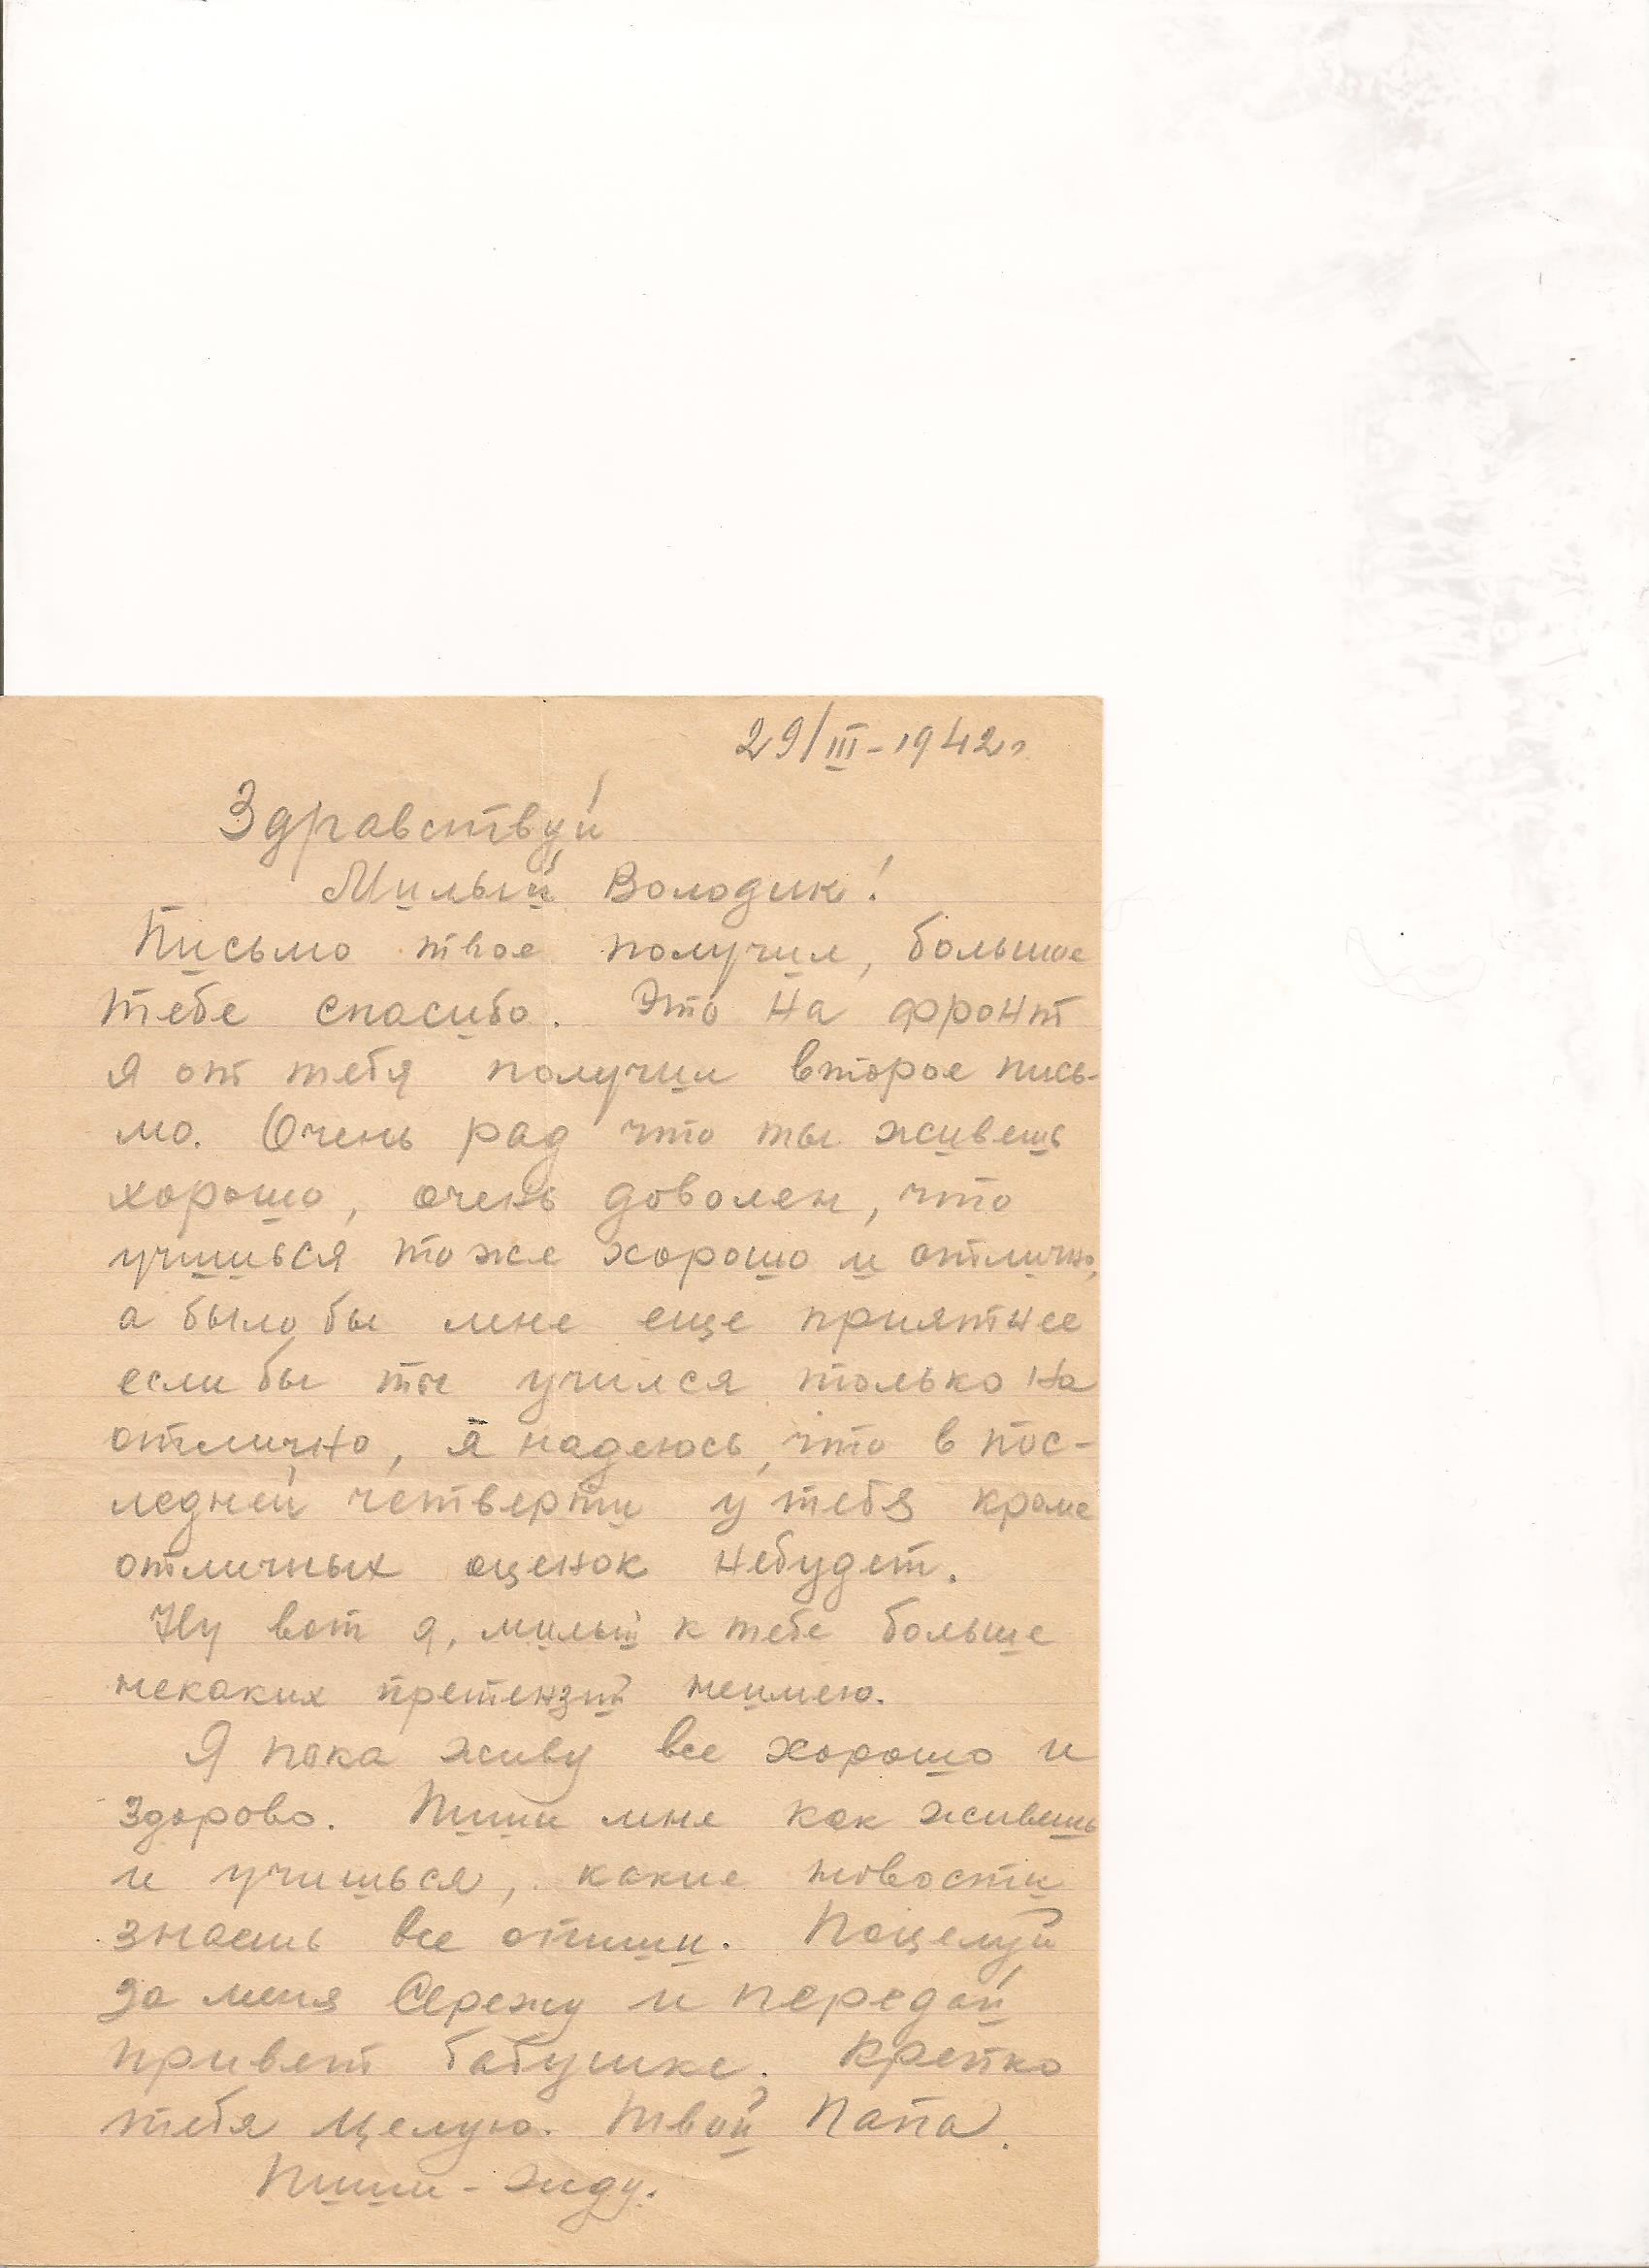 29/III-1942г.
Здравствуй
Милый Володик!
Письмо твое получил, большое
тебе спасибо. Это на фронт
я от тебя получил второе пись-
мо. Очень рад что ты живешь
хорошо, очень доволен, что
учишься тоже хорошо и отлично,
а было бы мне еще приятнее
если бы ты учился только на
отлично, я надеюсь, что в пос-
ледней четверти у тебя кроме
отличных оценок небудет.
Ну вот я, милый к тебе больше
некаких претензий неимею.
Я пока живу все хорошо и
здорово. Пиши мне как живешь
и учишься, какие новости
знаешь все опиши. Поцелуй
за меня Сережу и передай
привет бабушке. Крепко
тебя целую. Твой Папа.
Пиши - жду.